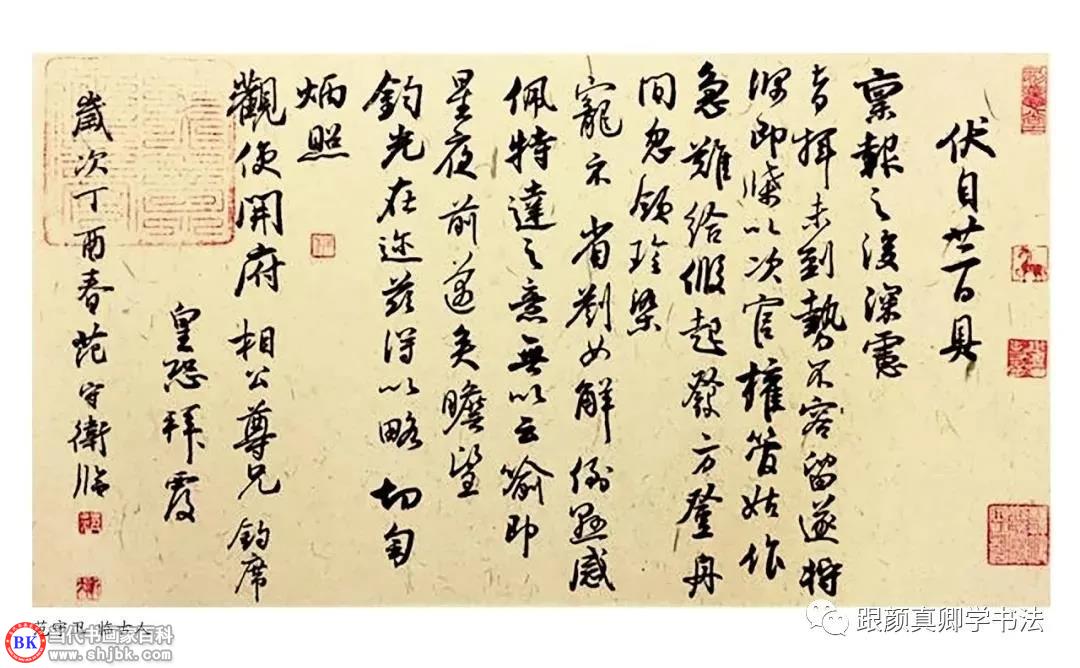 伏自廿二日具
稟報之後深慮
旨揮未到勢不容留遂將
即牒以次官權管姑作
急難給假起發方登舟
間忽領珍染
寵示省劄如解倒懸感
佩特達之意無以云喻即
星夜前邁矣瞻望
鈞光在迩茲得以略 切匄
炳照
觀使開府 相公尊兄 鈞席
皇恐拜覆
歲次丁酉春范守衛臨
范守卫 临古人
BK 当代书画家百科
www.shjbk.com
跟颜真卿学书法